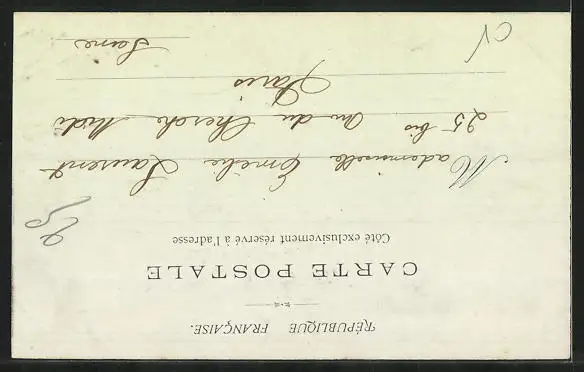 RÉPUBLIQUE FRANÇAISE.
CARTE POSTALE
Côté exclusivement réservé à l'adresse
Mademoiselle Emélie Laurent
25 bis rue du Cherche Midi
Paris
Seine
CV